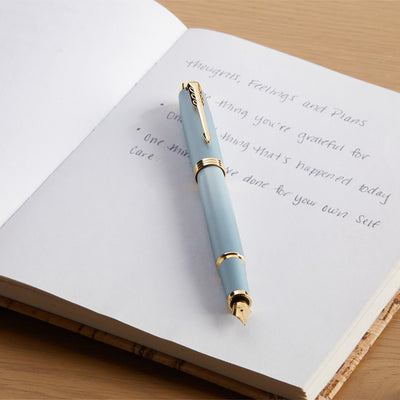 thoughts, Feelings and Plans
• One thing you're grateful for
• One thing that's happened today
• One thing you've done for your own self
care